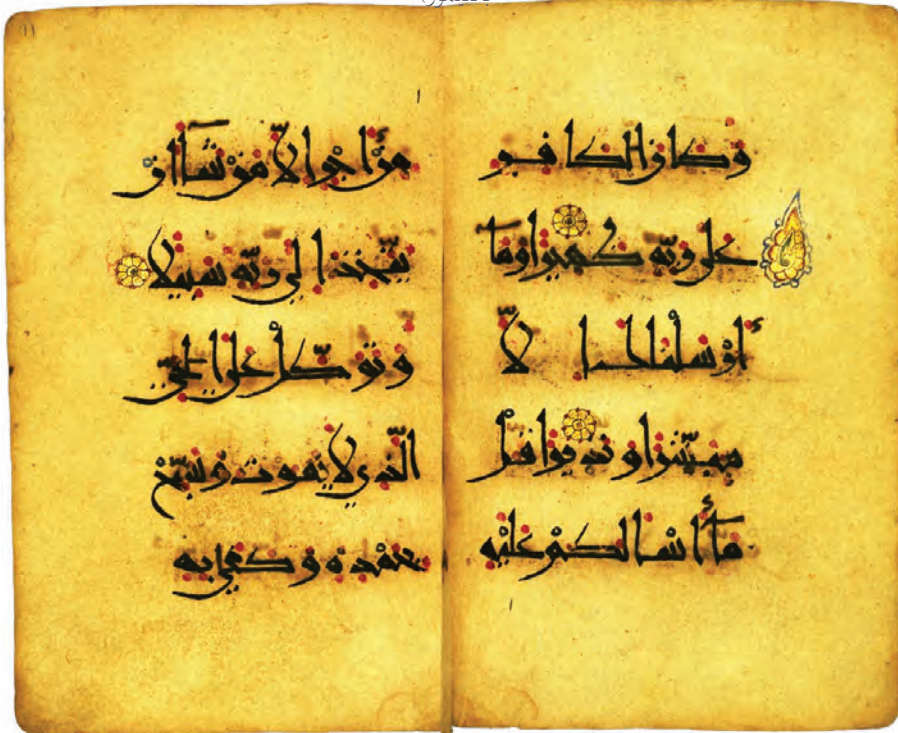 وكان الكافر
على ربه ظهيرا وما
أرسلنك إلّا
مبشّرا ونذيرا قل
ما أسألكم عليه
من أجر إلّا من شاء أن
يتّخذ إلى ربّه سبيلا
وتوكّل على الحيّ
الّذي لا يموت وسبّح
بحمده وكفى به